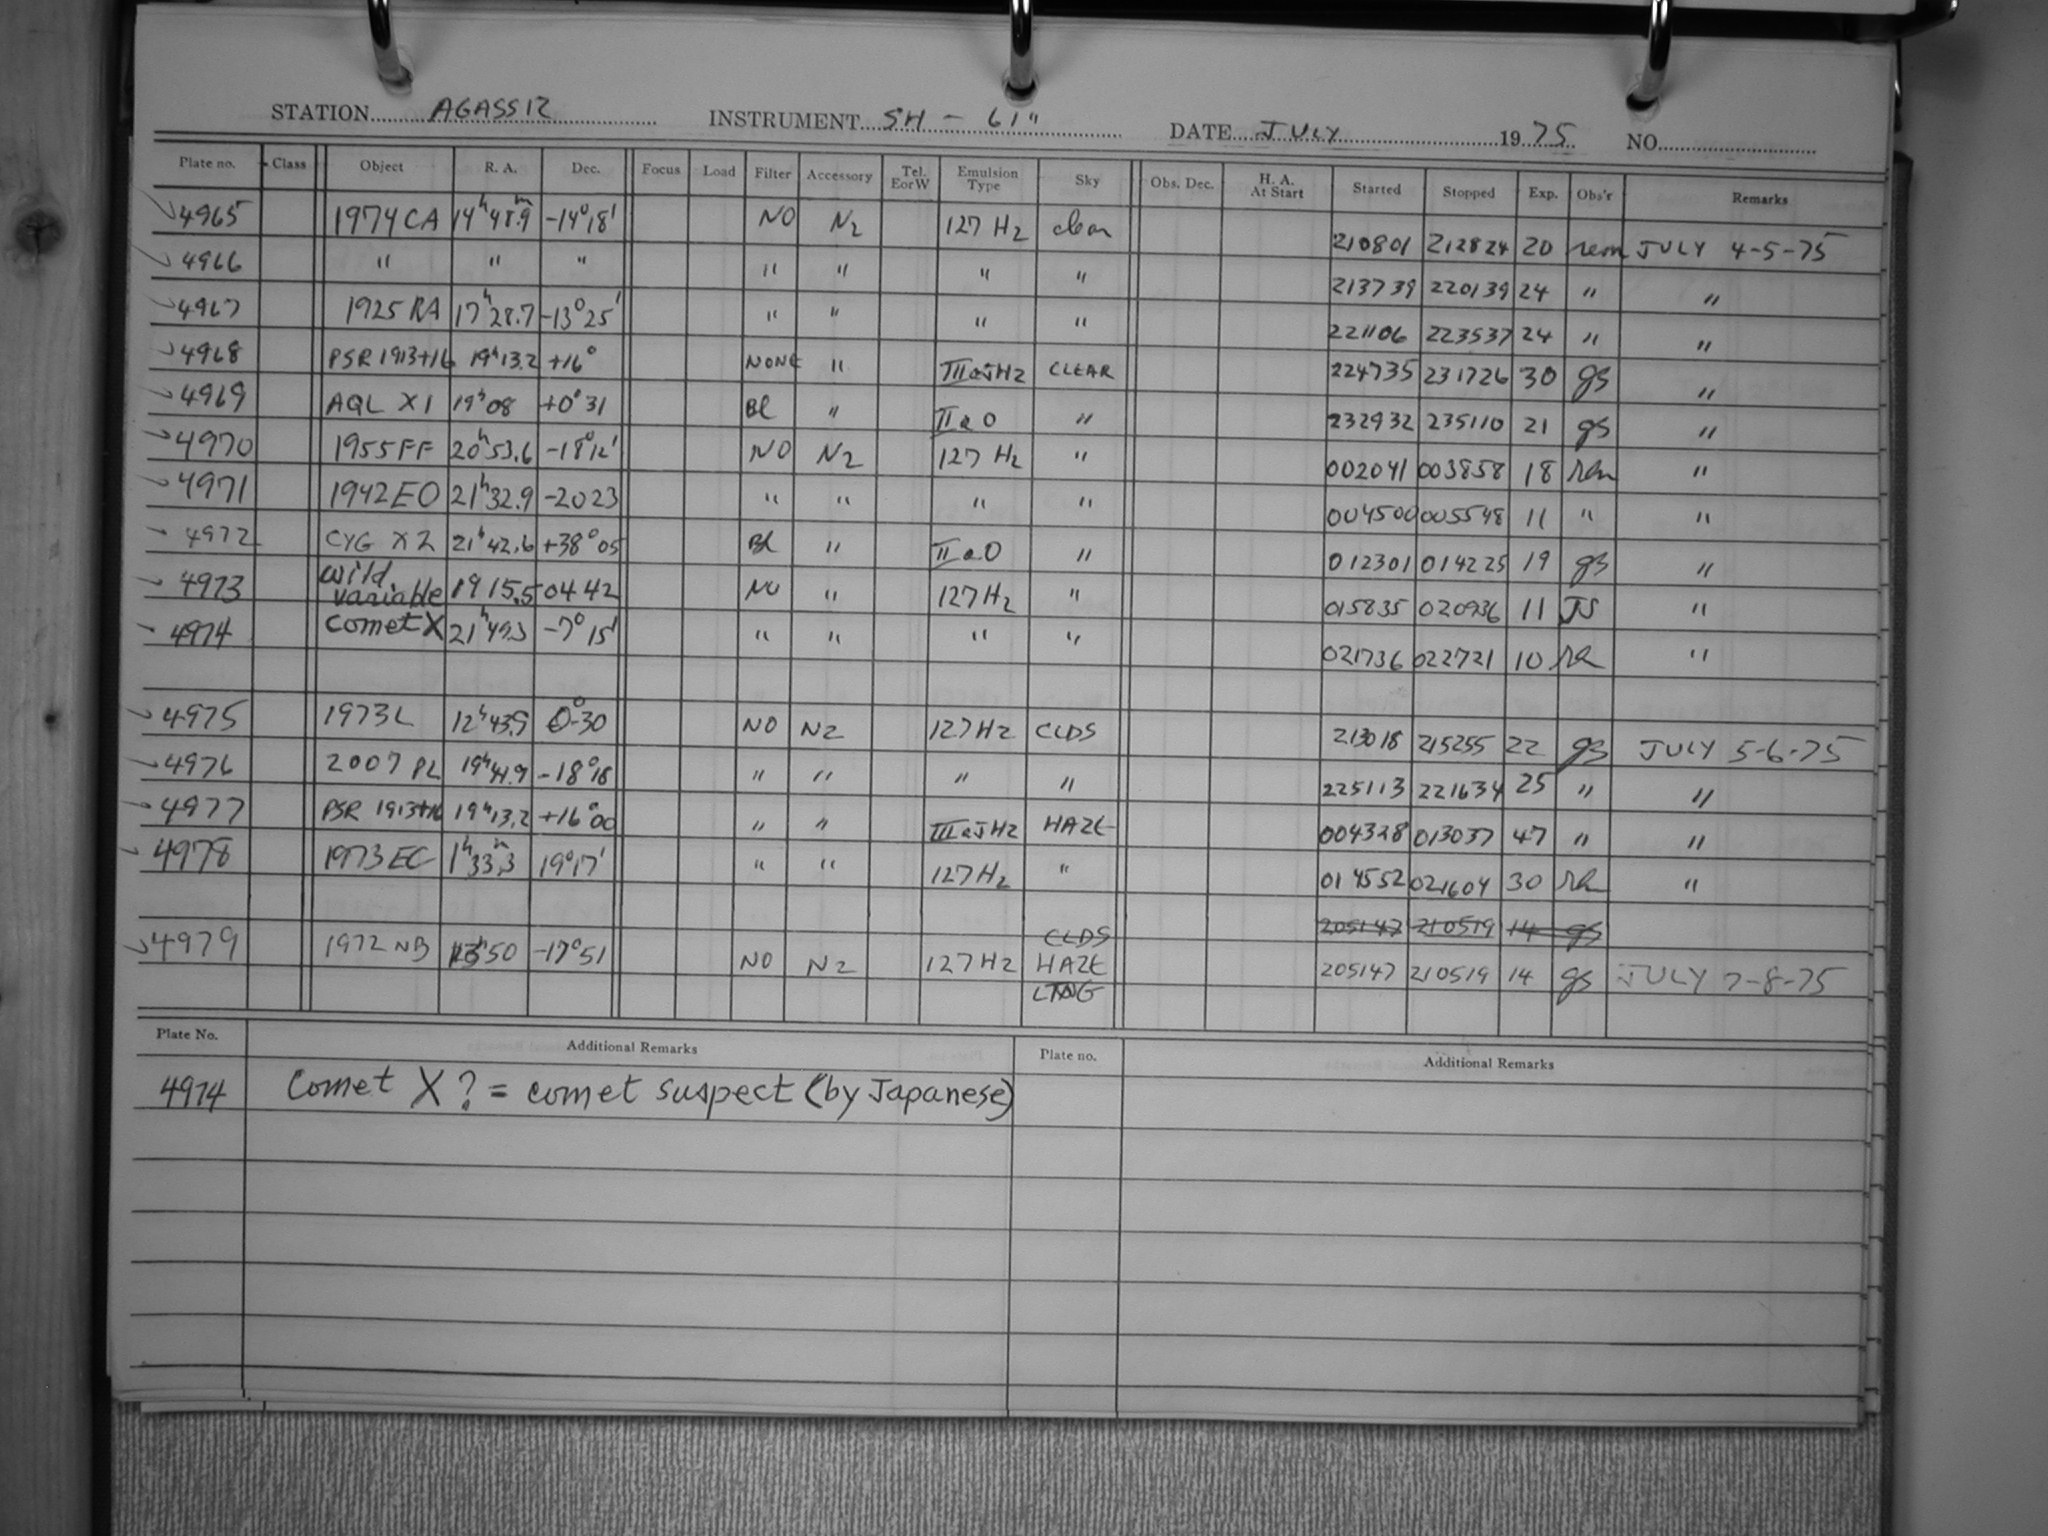 STATION AGASSIZ INSTRUMENT SH - 61" DATE JULY 1975 NO.
Plate no. Class Object R. A. Dec. Focus Load Filter Accessory Tel. E or W Emulsion Type Sky Obs. Dec. H. A. At Start Started Stopped Exp. Obs'r Remarks
4965 1974 CA 14h 48.9m -14°18' NO N2 127 H2 clear 210801 212824 20 rem JULY 4-5-75
4966 " " " " " " " 213739 220139 24 " "
4967 1925 RA 17h28.7 -13°25' " " " " 221106 223537 24 " "
4968 PSR 1913+16 19h13.2 +16° NONE " IIIaJH2 CLEAR 224735 231726 30 gs "
4969 AQL X1 19h08 +0°31 Bl " IIaO " 232932 235110 21 gs "
4970 1955 FF 20h53.6 -18°12' NO N2 127 H2 " 002041 003858 18 "
4971 1942 EO 21h32.9 -20 23 " " " " 004500 005548 11 " "
4972 CYG X2 21h42.6 +38°05 Bl " IIaO " 012301 014225 19 gs "
4973 Wild. variable 19 15.5 04 42 NO " 127 H2 " 015835 020936 11 JS "
4974 Comet X 21h49.3 -7°15' " " " " 021736 022721 10 "
4975 1973L 12h43.9 0°-30 NO N2 127 H2 CLDS 213018 215255 22 gs JULY 5-6-75
4976 2007 PL 19h41.9 -18°18 " " " " 225113 221634 25 " "
4977 PSR 1913+16 19h13.2 +16°00 " " IIIaJH2 HAZE 004328 013037 47 " "
4978 1973 EC 1h33.3m 19°17' " " 127 H2 " 014552 021604 30 "
CLDS 205147 210519 14 gs
4979 1972 NB 13h50 -17°51 NO N2 127 H2 HAZE 205147 210519 14 gs JULY 7-8-75
LTNG
Plate No. Additional Remarks Plate no. Additional Remarks
4974 Comet X ? = comet suspect (by Japanese)